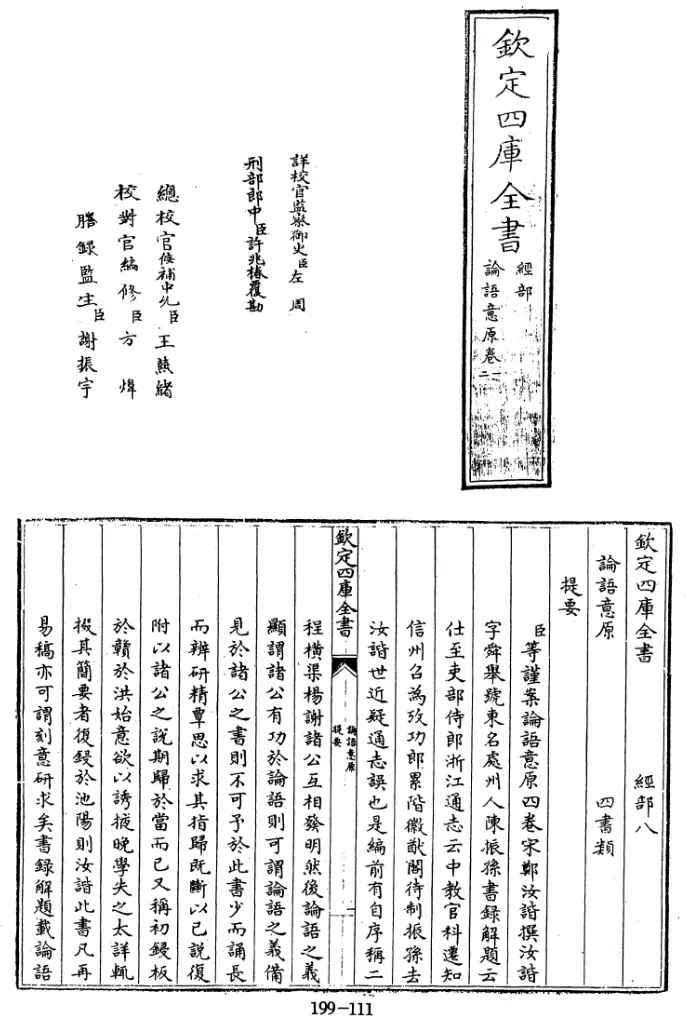 欽定四庫全書
經部
論語意原卷一
二
詳校官監察御史臣左周
刑部郎中臣許兆椿覆勘
總校官候補中允臣王燕緒
校對官編修臣方煒
謄錄監生臣謝振宇
欽定四庫全書 經部八
論語意原 四書類
提要
臣等謹案論語意原四卷宋鄭汝諧撰汝諧
字舜舉號東名處州人陳振孫書録解題云
仕至吏部侍郎浙江通志云中教官科遷知
信州召為攷功郎累階徽猷閣待制振孫去
汝諧世近疑通志誤也是編前有自序稱二
欽定四庫全書
論語意原
提要
二
程橫渠楊謝諸公互相發明然後論語之義
顯謂諸公有功於論語則可謂論語之義備
見於諸公之書則不可予於此書少而誦長
而辨研精覃思以求其指歸既斷以己說復
附以諸公之説期歸於當而已又稱初鋟板
於贛於洪始意欲以誘掖晚學失之太詳輒
掇其簡要者復鋟於池陽則汝諧此書凡再
易稿亦可謂刻意研求矣書録解題載論語
199-111